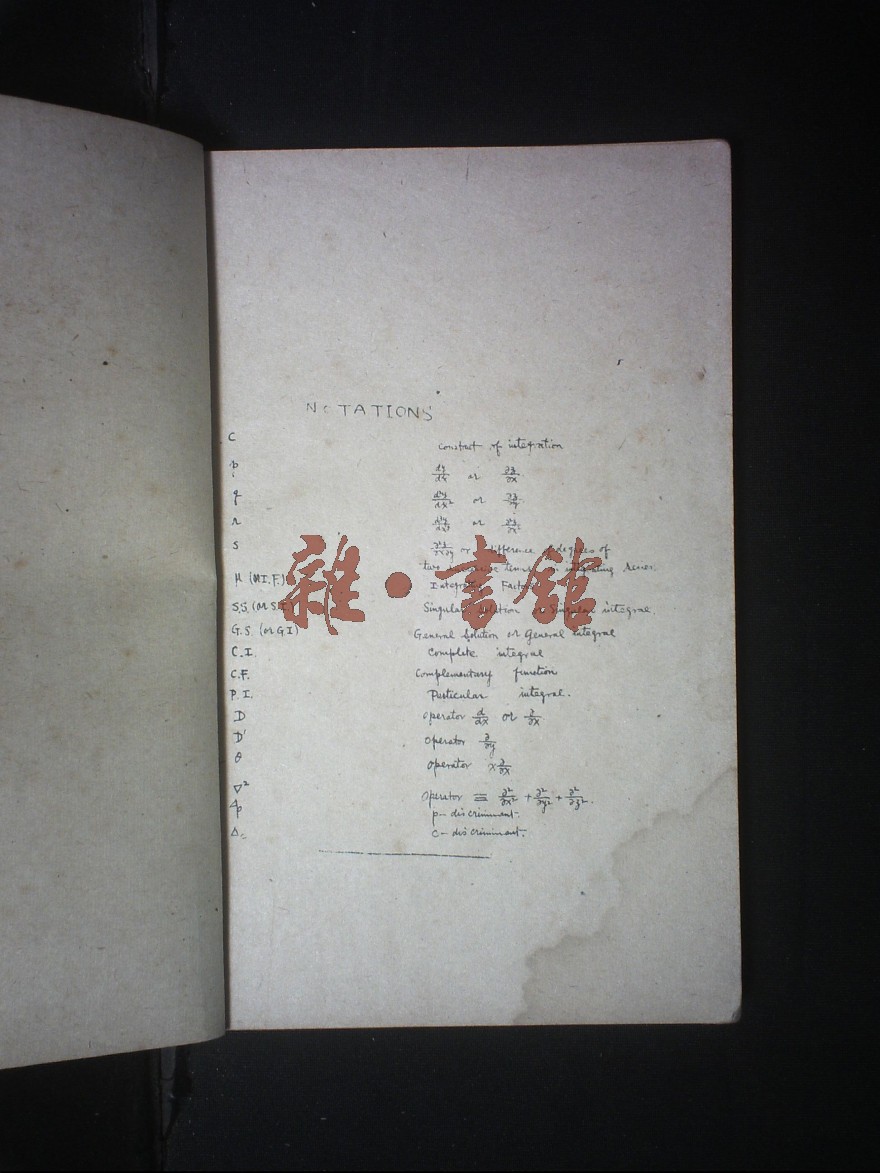 NOTATIONS
C constant of integration
p dy/dx or ∂z/∂x
q d²y/dx² or ∂z/∂y
r d³y/dx³ or ∂²z/∂x²
s ∂²z/∂x∂y or difference of degrees of
two terms in series.
μ (or I.F.) Integrating Factor
S.S. (or S.I.) Singular Solution or Singular integral.
G.S. (or G.I) General Solution or General integral
C.I. Complete integral
C.F. Complementary function
P.I. Particular integral.
D operator d/dx or ∂/∂x
D' operator ∂/∂y
θ operator x ∂/∂x
∇² operator ≡ ∂²/∂x² + ∂²/∂y² + ∂²/∂z².
Δp p-discriminant.
Δc c-discriminant.
雜·書館